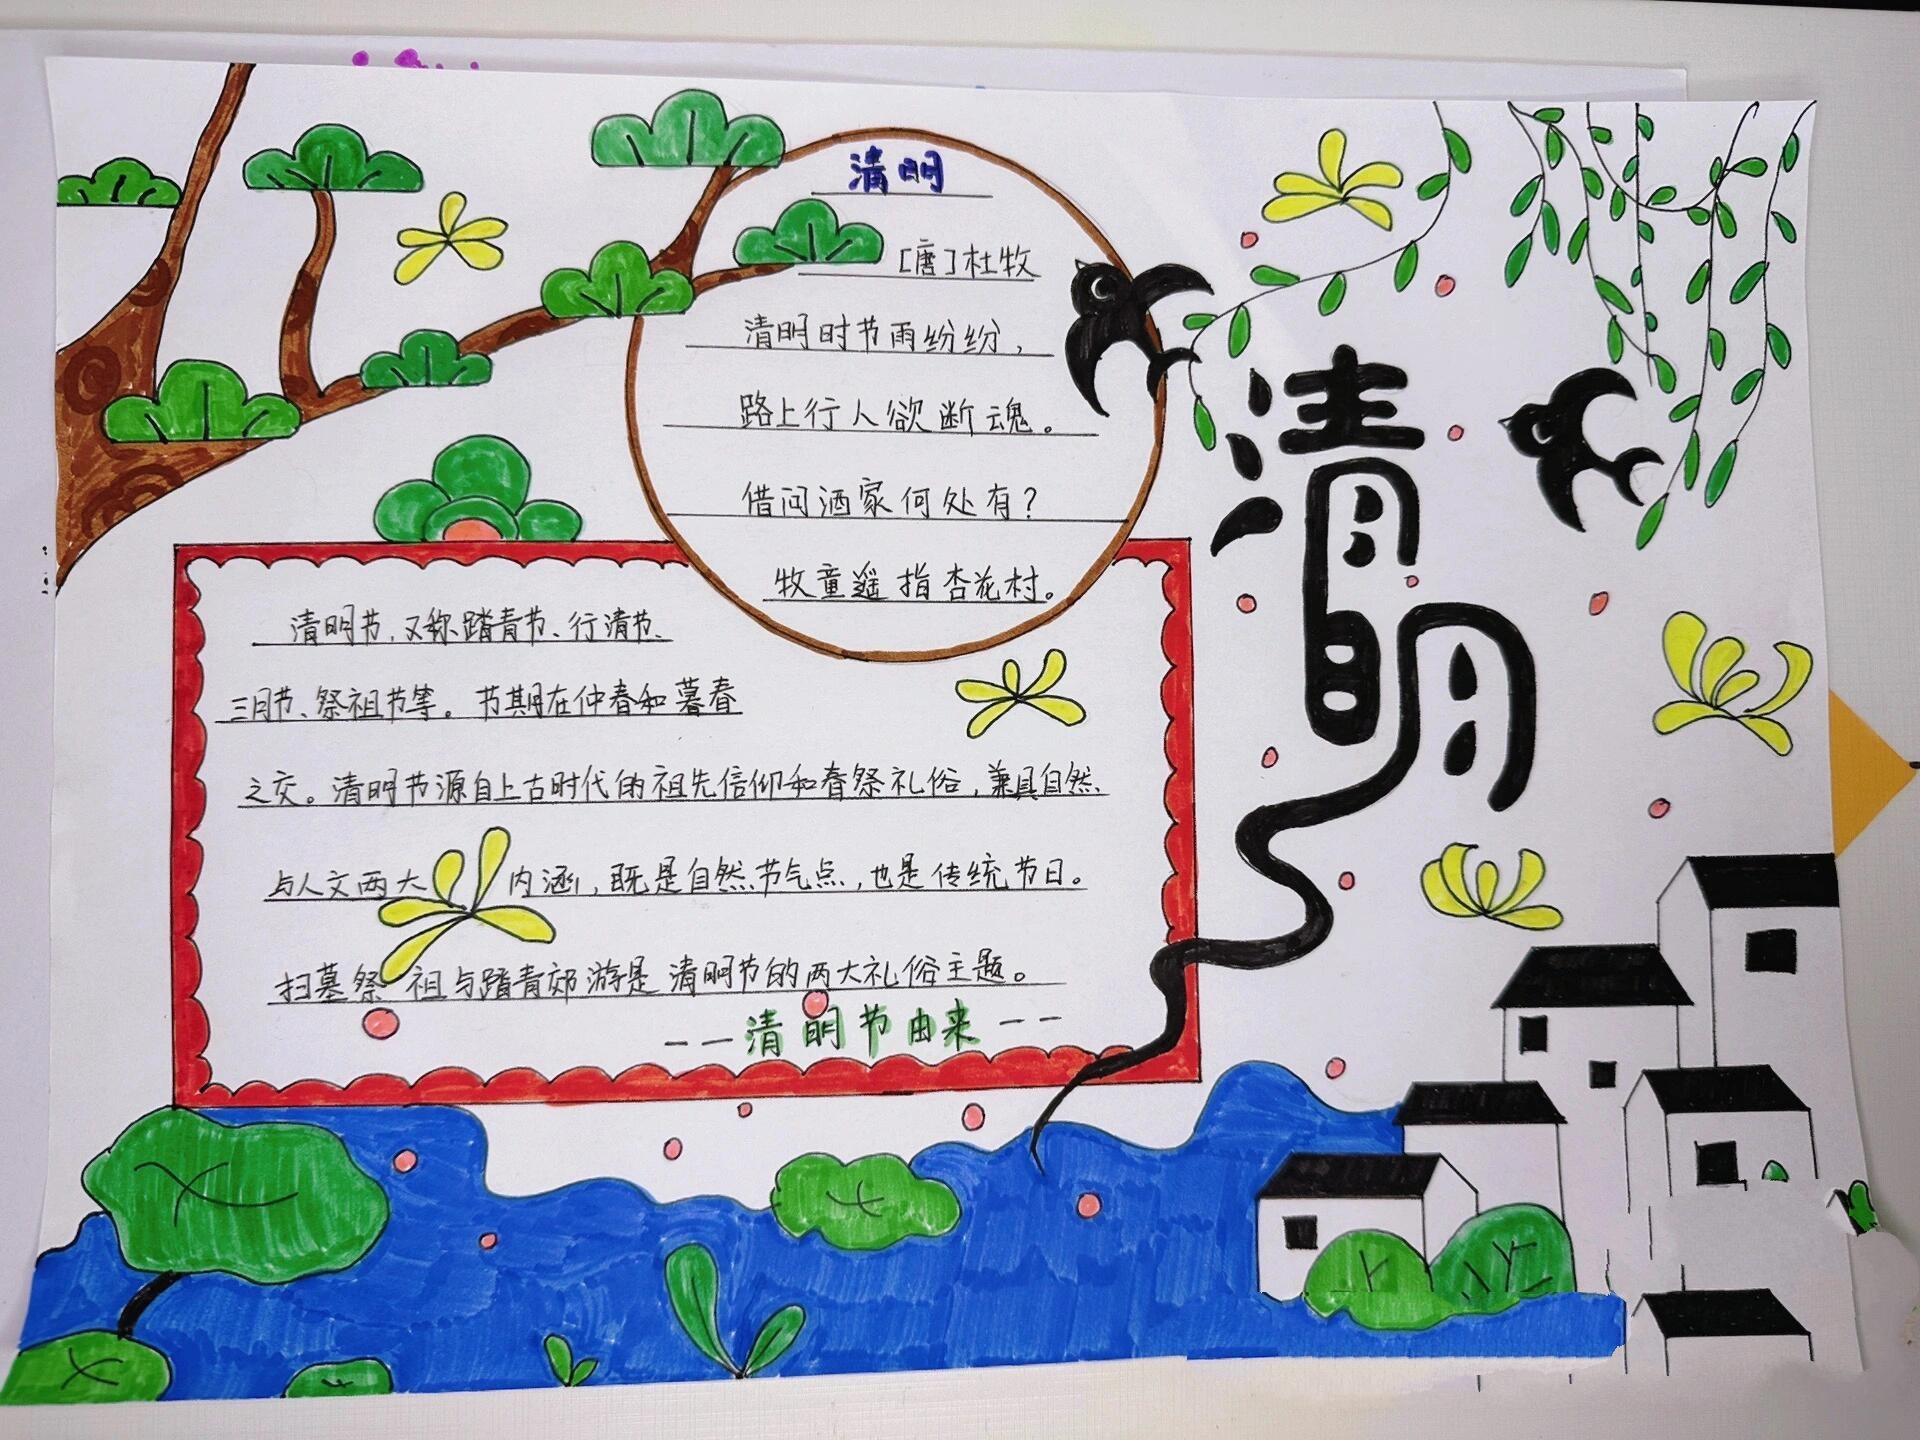 清明
[唐]杜牧
清明时节雨纷纷，
路上行人欲断魂。
借问酒家何处有？
牧童遥指杏花村。
清明
清明节,又称踏青节、行清节、
三月节、祭祖节等。节期在仲春和暮春
之交。清明节源自上古时代的祖先信仰和春祭礼俗,兼具自然
与人文两大内涵,既是自然节气点,也是传统节日。
扫墓祭祖与踏青郊游是清明节的两大礼俗主题。
——清明节由来——